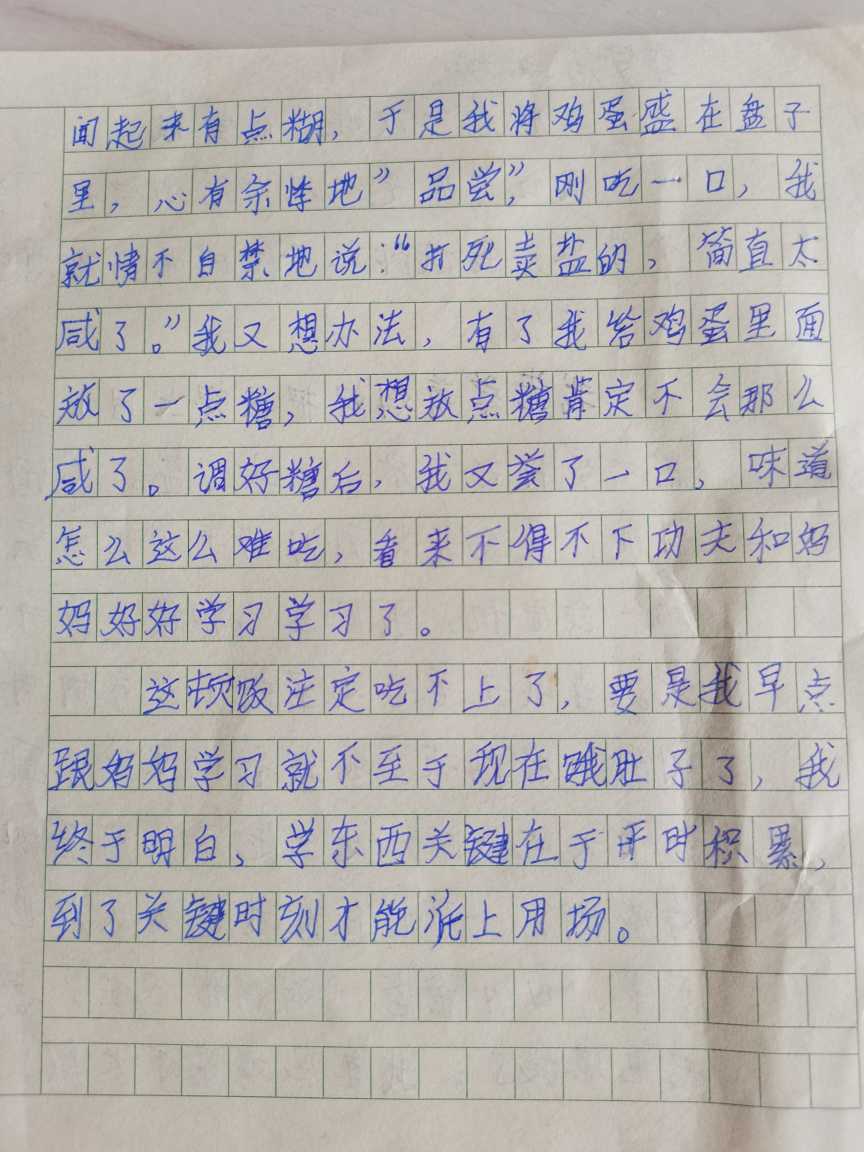 闻起来有点糊，于是我将鸡蛋盛在盘子
里，心有余悸地”品尝”，刚吃一口，我
就情不自禁地说：“打死卖盐的，简直太
咸了。”我又想办法，有了我给鸡蛋里面
放了一点糖，我想放点糖肯定不会那么
咸了。调好糖后，我又尝了一口，味道
怎么这么难吃，看来不得不下功夫和妈
妈好好学习学习了。
这顿饭注定吃不上了，要是我早点
跟妈妈学习就不至于现在饿肚子了，我
终于明白，学东西关键在于平时积累，
到了关键时刻才能派上用场。